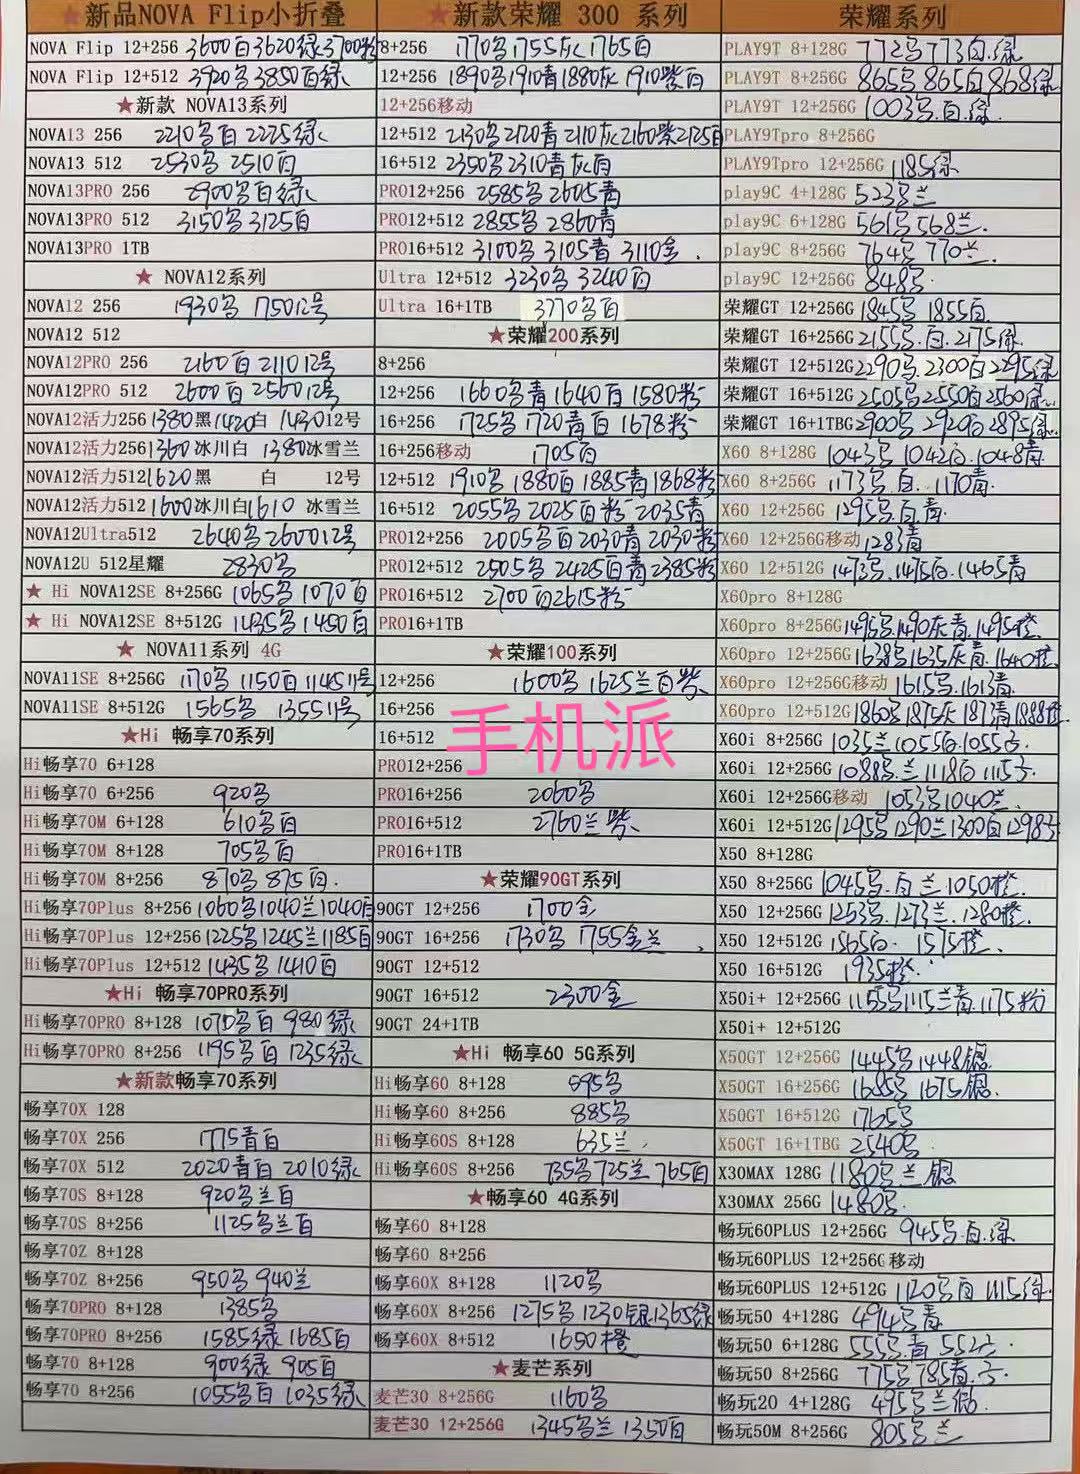 ★新品NOVA Flip小折叠
NOVA Flip 12+256 3600白3620绿3700粉
NOVA Flip 12+512 3920名3850白绿
★新款 NOVA13系列
NOVA13 256 2210名白 2225绿
NOVA13 512 2530名 2510白
NOVA13PRO 256 2900名白绿
NOVA13PRO 512 3150名 3125白
NOVA13PRO 1TB
★ NOVA12系列
NOVA12 256 1930名 175012号
NOVA12 512
NOVA12PRO 256 2160白 211012号
NOVA12PRO 512 2600白 256012号
NOVA12活力256 1380黑1420白 143012号
NOVA12活力256 1360冰川白 1380冰雪兰
NOVA12活力512 1620黑 白 12号
NOVA12活力512 1600冰川白1610 冰雪兰
NOVA12Ultra512 2640名260012号
NOVA12U 512星耀 2830名
★ Hi NOVA12SE 8+256G 1065名 1070白
★ Hi NOVA12SE 8+512G 1435名 1450白
★ NOVA11系列 4G
NOVA11SE 8+256G 1170名 1150白 114511号
NOVA11SE 8+512G 1565名 135511号
★Hi 畅享70系列
Hi畅享70 6+128
Hi畅享70 6+256 920名
Hi畅享70M 6+128 610名白
Hi畅享70M 8+128 705名白
Hi畅享70M 8+256 870名 875白.
Hi畅享70Plus 8+256 1060名1040兰1040白
Hi畅享70Plus 12+256 1225名1245兰1185白
Hi畅享70Plus 12+512 1435名 1410白
★Hi 畅享70PRO系列
Hi畅享70PRO 8+128 1070名白 980绿
Hi畅享70PRO 8+256 1195名白 1235绿
★新款畅享70系列
畅享70X 128
畅享70X 256 1775青白
畅享70X 512 2020青白 2010绿
畅享70S 8+128 920名兰白
畅享70S 8+256 1125名兰白
畅享70Z 8+128
畅享70Z 8+256 950名 940兰
畅享70PRO 8+128 1385名
畅享70PRO 8+256 1585绿 1685白
畅享70 8+128 900绿 905白
畅享70 8+256 1055名白 1035绿
★新款荣耀 300 系列
8+256 1770名1755灰1765白
12+256 1890名1910青1880灰 1910紫白
12+256移动
12+512 2130名2120青2110灰2160紫2125白
16+512 2350名2310青灰白
PRO12+256 2585名 2605青
PRO12+512 2855名 2860青
PRO16+512 3100名 3105青 3110金.
Ultra 12+512 3230名 3240白
Ultra 16+1TB 3770名白
★荣耀200系列
8+256
12+256 1660名青1640白1580粉
16+256 1725名1720青白1678粉
16+256移动 1705白
12+512 1910名1880白1885青1868粉
16+512 2055名2025白粉2035青
PRO12+256 2005名白2030青2030粉
PRO12+512 2505名 2425白青2385粉
PRO16+512 2700白2615粉
PRO16+1TB
★荣耀100系列
12+256 1600名 1625兰白紫
16+256
手机派
16+512
PRO12+256
PRO16+256 2060名
PRO16+512 2760兰紫
PRO16+1TB
★荣耀90GT系列
90GT 12+256 1700金
90GT 16+256 1730名 1755金兰
90GT 12+512
90GT 16+512 2300金
90GT 24+1TB
★Hi 畅享60 5G系列
Hi畅享60 8+128 895名
Hi畅享60 8+256 885名
Hi畅享60S 8+128 635兰.
Hi畅享60S 8+256 735名725兰765白
★畅享60 4G系列
畅享60 8+128
畅享60 8+256
畅享60X 8+128 1120名
畅享60X 8+256 1275名1230银1365绿
畅享60X 8+512 1650橙
★麦芒系列
麦芒30 8+256G 1160名
麦芒30 12+256G 1345名兰1350白
荣耀系列
PLAY9T 8+128G 772名773白.绿
PLAY9T 8+256G 865名865白868绿
PLAY9T 12+256G 1003名.白.绿
PLAY9Tpro 8+256G
PLAY9Tpro 12+256G 1185绿
play9C 4+128G 523名兰
play9C 6+128G 561名568兰.
play9C 8+256G 764名 770兰.
play9C 12+256G 848名.
荣耀GT 12+256G 1845名1855白.
荣耀GT 16+256G 2155名.白.2175绿.
荣耀GT 12+512G 2290名.2300白2295绿
荣耀GT 16+512G 2505名2550白2560绿.
荣耀GT 16+1TBG 2900名2920白2895绿.
X60 8+128G 1043名1042白.1048青
X60 8+256G 1173名.白.1170青.
X60 12+256G 1295名白青.
X60 12+256G移动 1283青
X60 12+512G 1473名.1475白.1465青
X60pro 8+128G
X60pro 8+256G 1495名.1490灰青.1495橙.
X60pro 12+256G 1638名1635灰青.1640橙.
X60pro 12+256G移动 1615名.1613青.
X60pro 12+512G 1860名1875灰1871青1888橙.
X60i 8+256G 1035兰1055白.1055云.
X60i 12+256G 1088名.兰1118白1115云.
X60i 12+256G移动 1053名1040兰.
X60i 12+512G 1295名1290兰1300白1298云
X50 8+128G
X50 8+256G 1045名.白兰1050橙.
X50 12+256G 1253名.1273兰.1280橙.
X50 12+512G 1565白. 1575橙.
X50 16+512G 1935橙.
X50i+ 12+256G 1155名1115兰青.1175粉
X50i+ 12+512G
X50GT 12+256G 1445名1448银.
X50GT 16+256G 1685名 1675银.
X50GT 16+512G 1765名
X50GT 16+1TBG 2540名.
X30MAX 128G 1180名兰银
X30MAX 256G 1480名.
畅玩60PLUS 12+256G 945名.白.绿.
畅玩60PLUS 12+256G移动
畅玩60PLUS 12+512G 1120名白1115绿.
畅玩50 4+128G 494名青
畅玩50 6+128G 555名.青 552云.
畅玩50 8+256G 775名785青.云.
畅玩20 4+128G 495名兰银.
畅玩50M 8+256G 805名兰